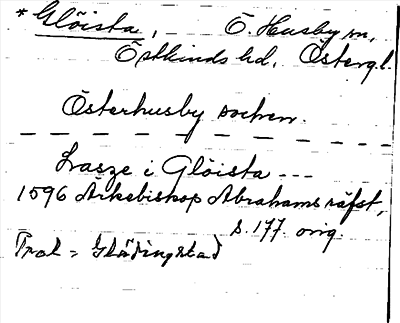 * Glöista, Ö. Husby sn,
Östkinds hd, Östergl.
Österhusby socken.
Lasze i Glöista ---
1596 Ärkebiskop Abrahams räfst,
s. 177. orig.
Trol = Glädingstad